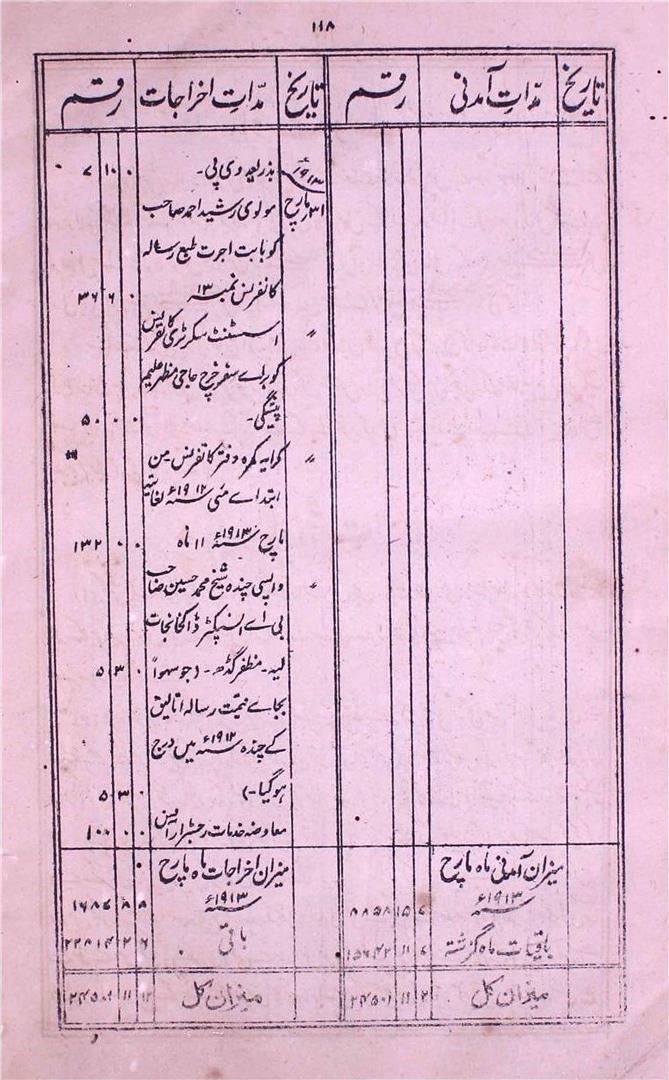 ۱۱۸
تاریخ مدّاتِ آمدنی رقم تاریخ مدّاتِ اخراجات رقم
۱۹۱۳ء بذریعہ وی پی۔ ۷ ۱۰ ۰
۳۱؍مارچ مولوی رشید احمد صاحب
کو بابت اجرت طبع رسالہ
کانفرنس نمبر ۱۳ ۳۶ ۶ ۰
〃 اسسٹنٹ سکرٹری کانفرنس
کو براے سفر خرچ حاجی مظہر علیم
پیشگی۔ ۵۰ ۰ ۰
〃 کرایہ کمرہ دفتر کانفرنس من
ابتداے مئی ۱۹۱۲ء لغایتہ
مارچ ۱۹۱۳ء ۱۱ ماہ ۱۳۲ ۰ ۰
〃 واپسی چندہ شیخ محمد حسین صاحب
بی اے انسپکٹر ڈاکخانجات
لیہ۔ مظفر گڈھ۔ (جو سہواً ۵ ۳ ۰
بجاے قیمت رسالہ اتالیق
کے چندہ ۱۹۱۲ء میں درج
ہوگیا۔) ۵ ۳ ۰
معاوضہ خدمات رجسٹرار ۱۰۰ ۰ ۰
میزان آمدنی ماہ مارچ میزان اخراجات ماہ مارچ
۱۹۱۳ء ۸۸۵۸ ۱۵ ۷ ۱۹۱۳ء ۱۶۸۷ ۸ ۸
باقیات ماہ گزشتہ ۱۵۶۴۲ ۱۱ ۷ باقی ۲۲۸۱۴ ۲ ۶
میزان کل ۲۴۵۰۱ ۱۱ ۲ میزان کل ۲۴۵۰۱ ۱۱ ۲